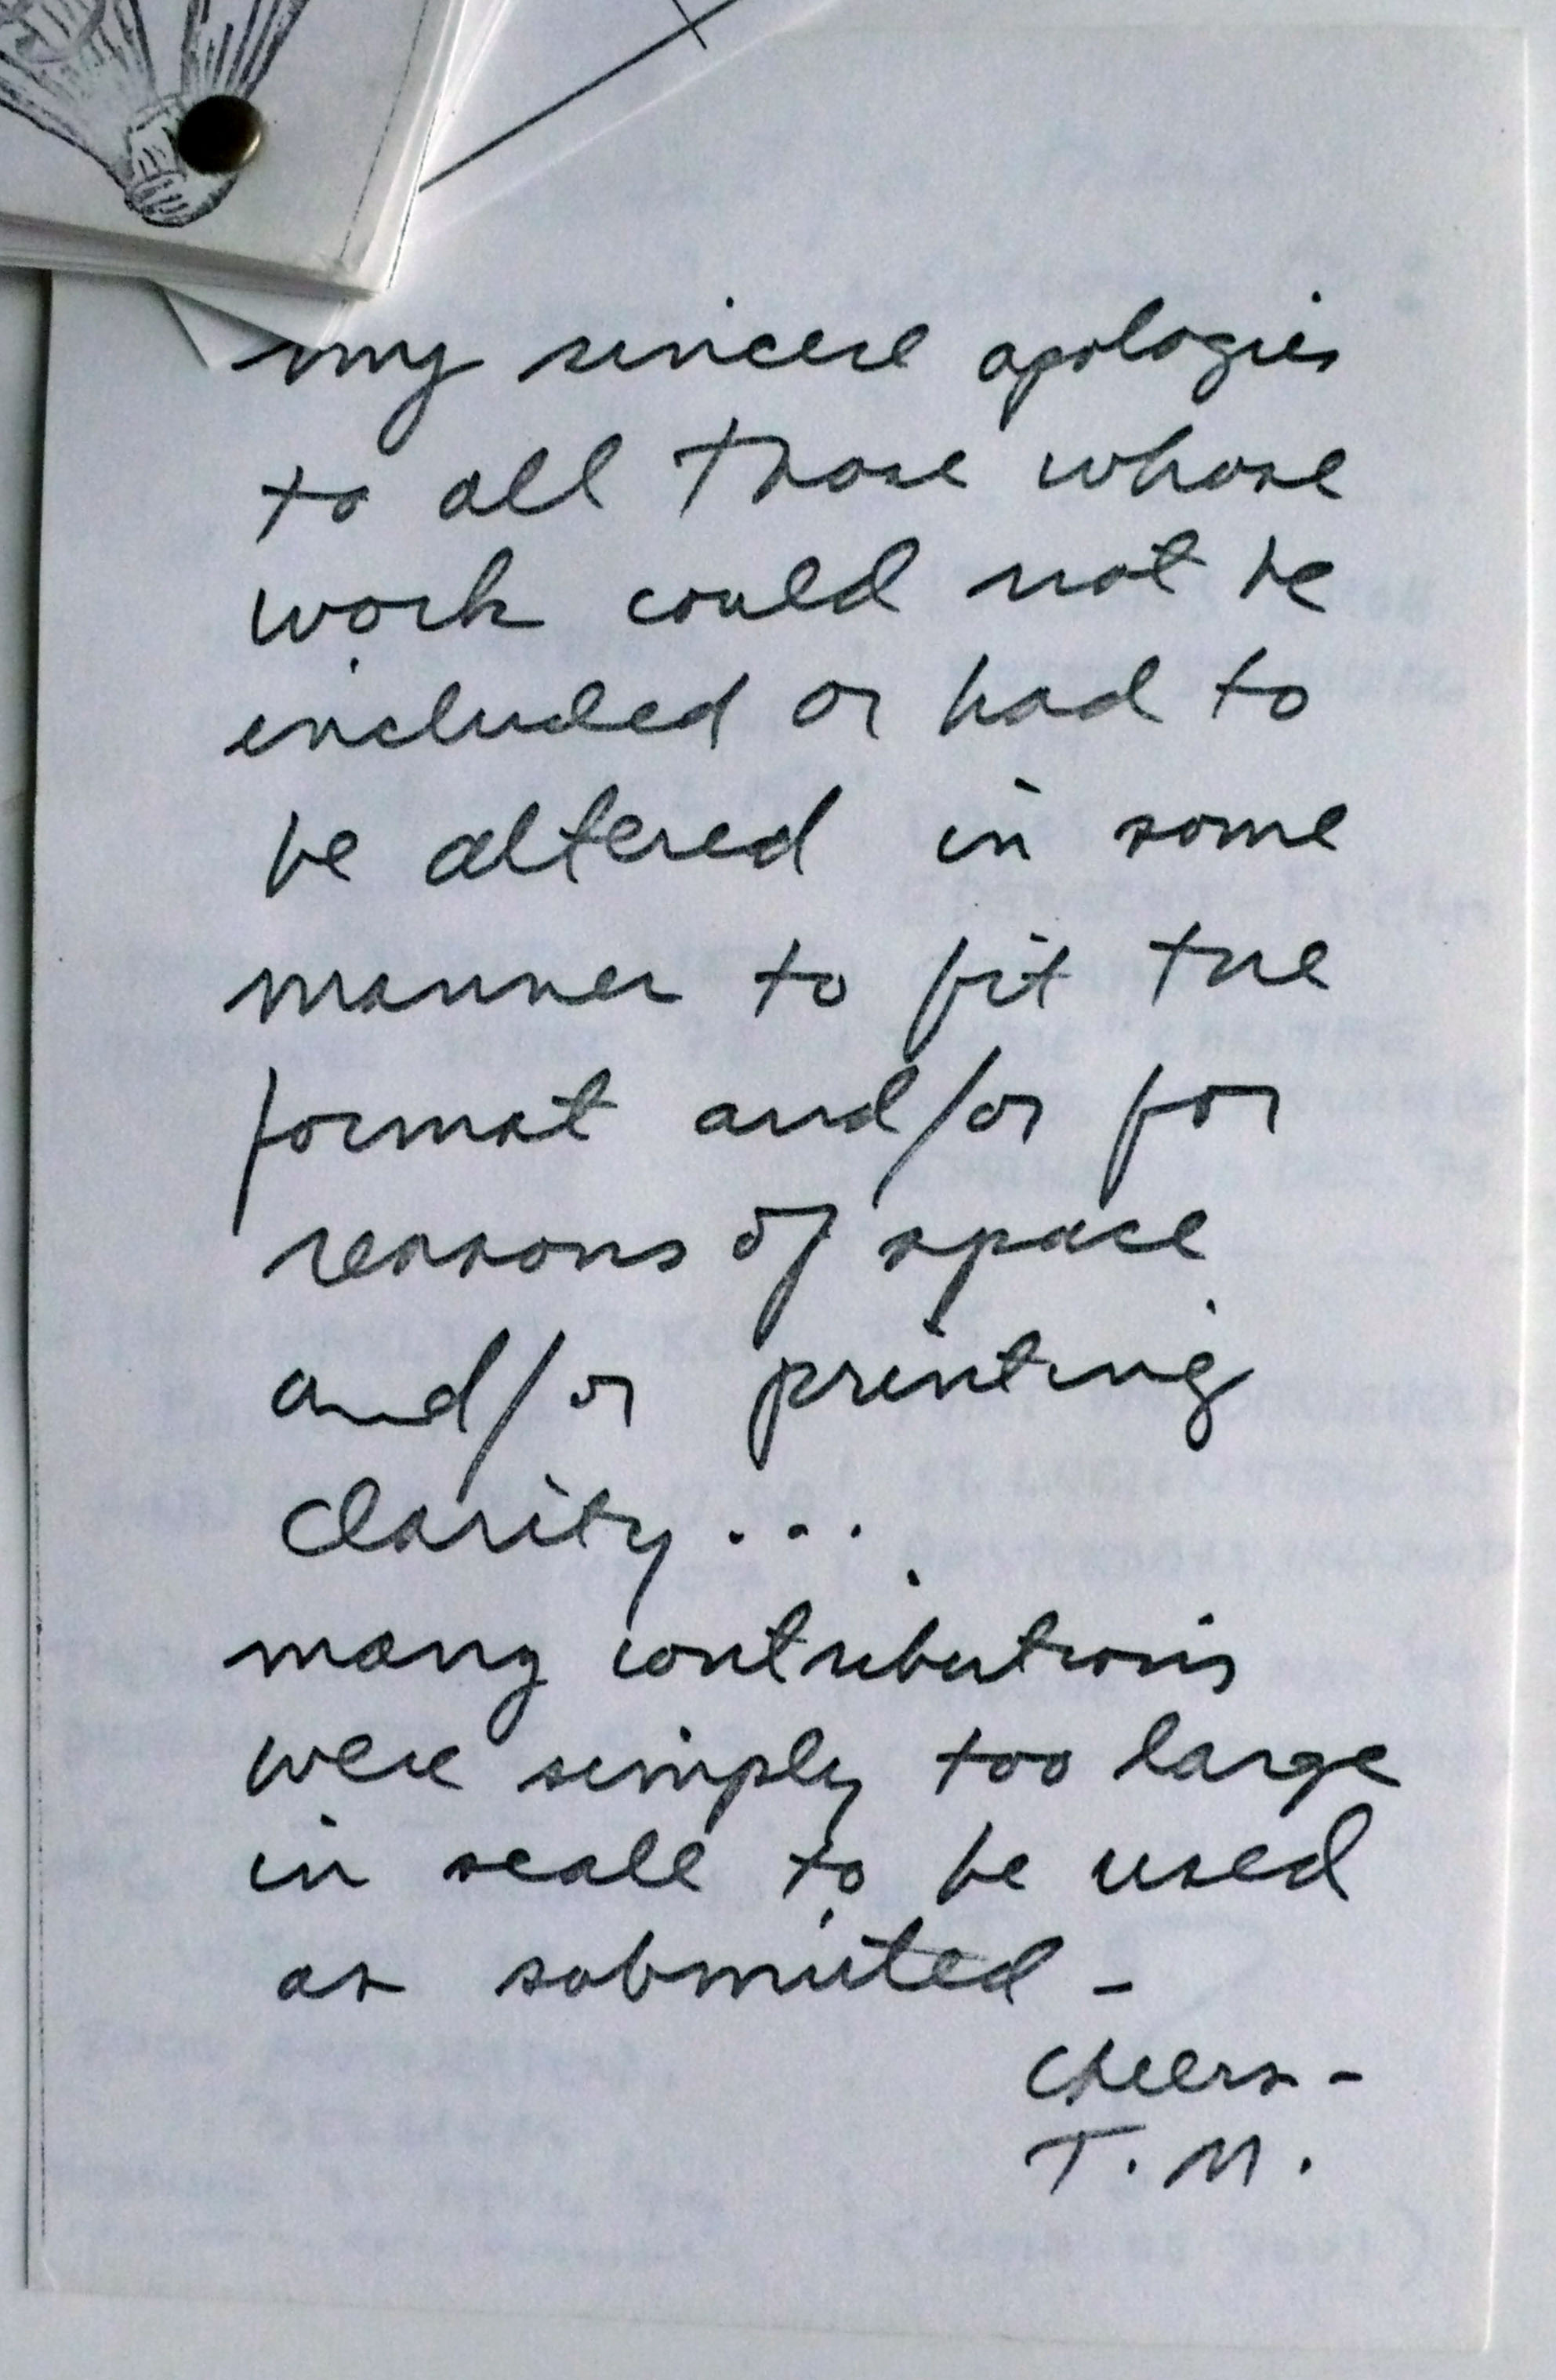 my sincere apologies
to all those whose
work could not be
included or had to
be altered in some
manner to fit the
format and/or for
reasons of space
and/or printing
clarity...
many contributions
were simply too large
in scale to be used
as submitted -
cheers -
T.M.